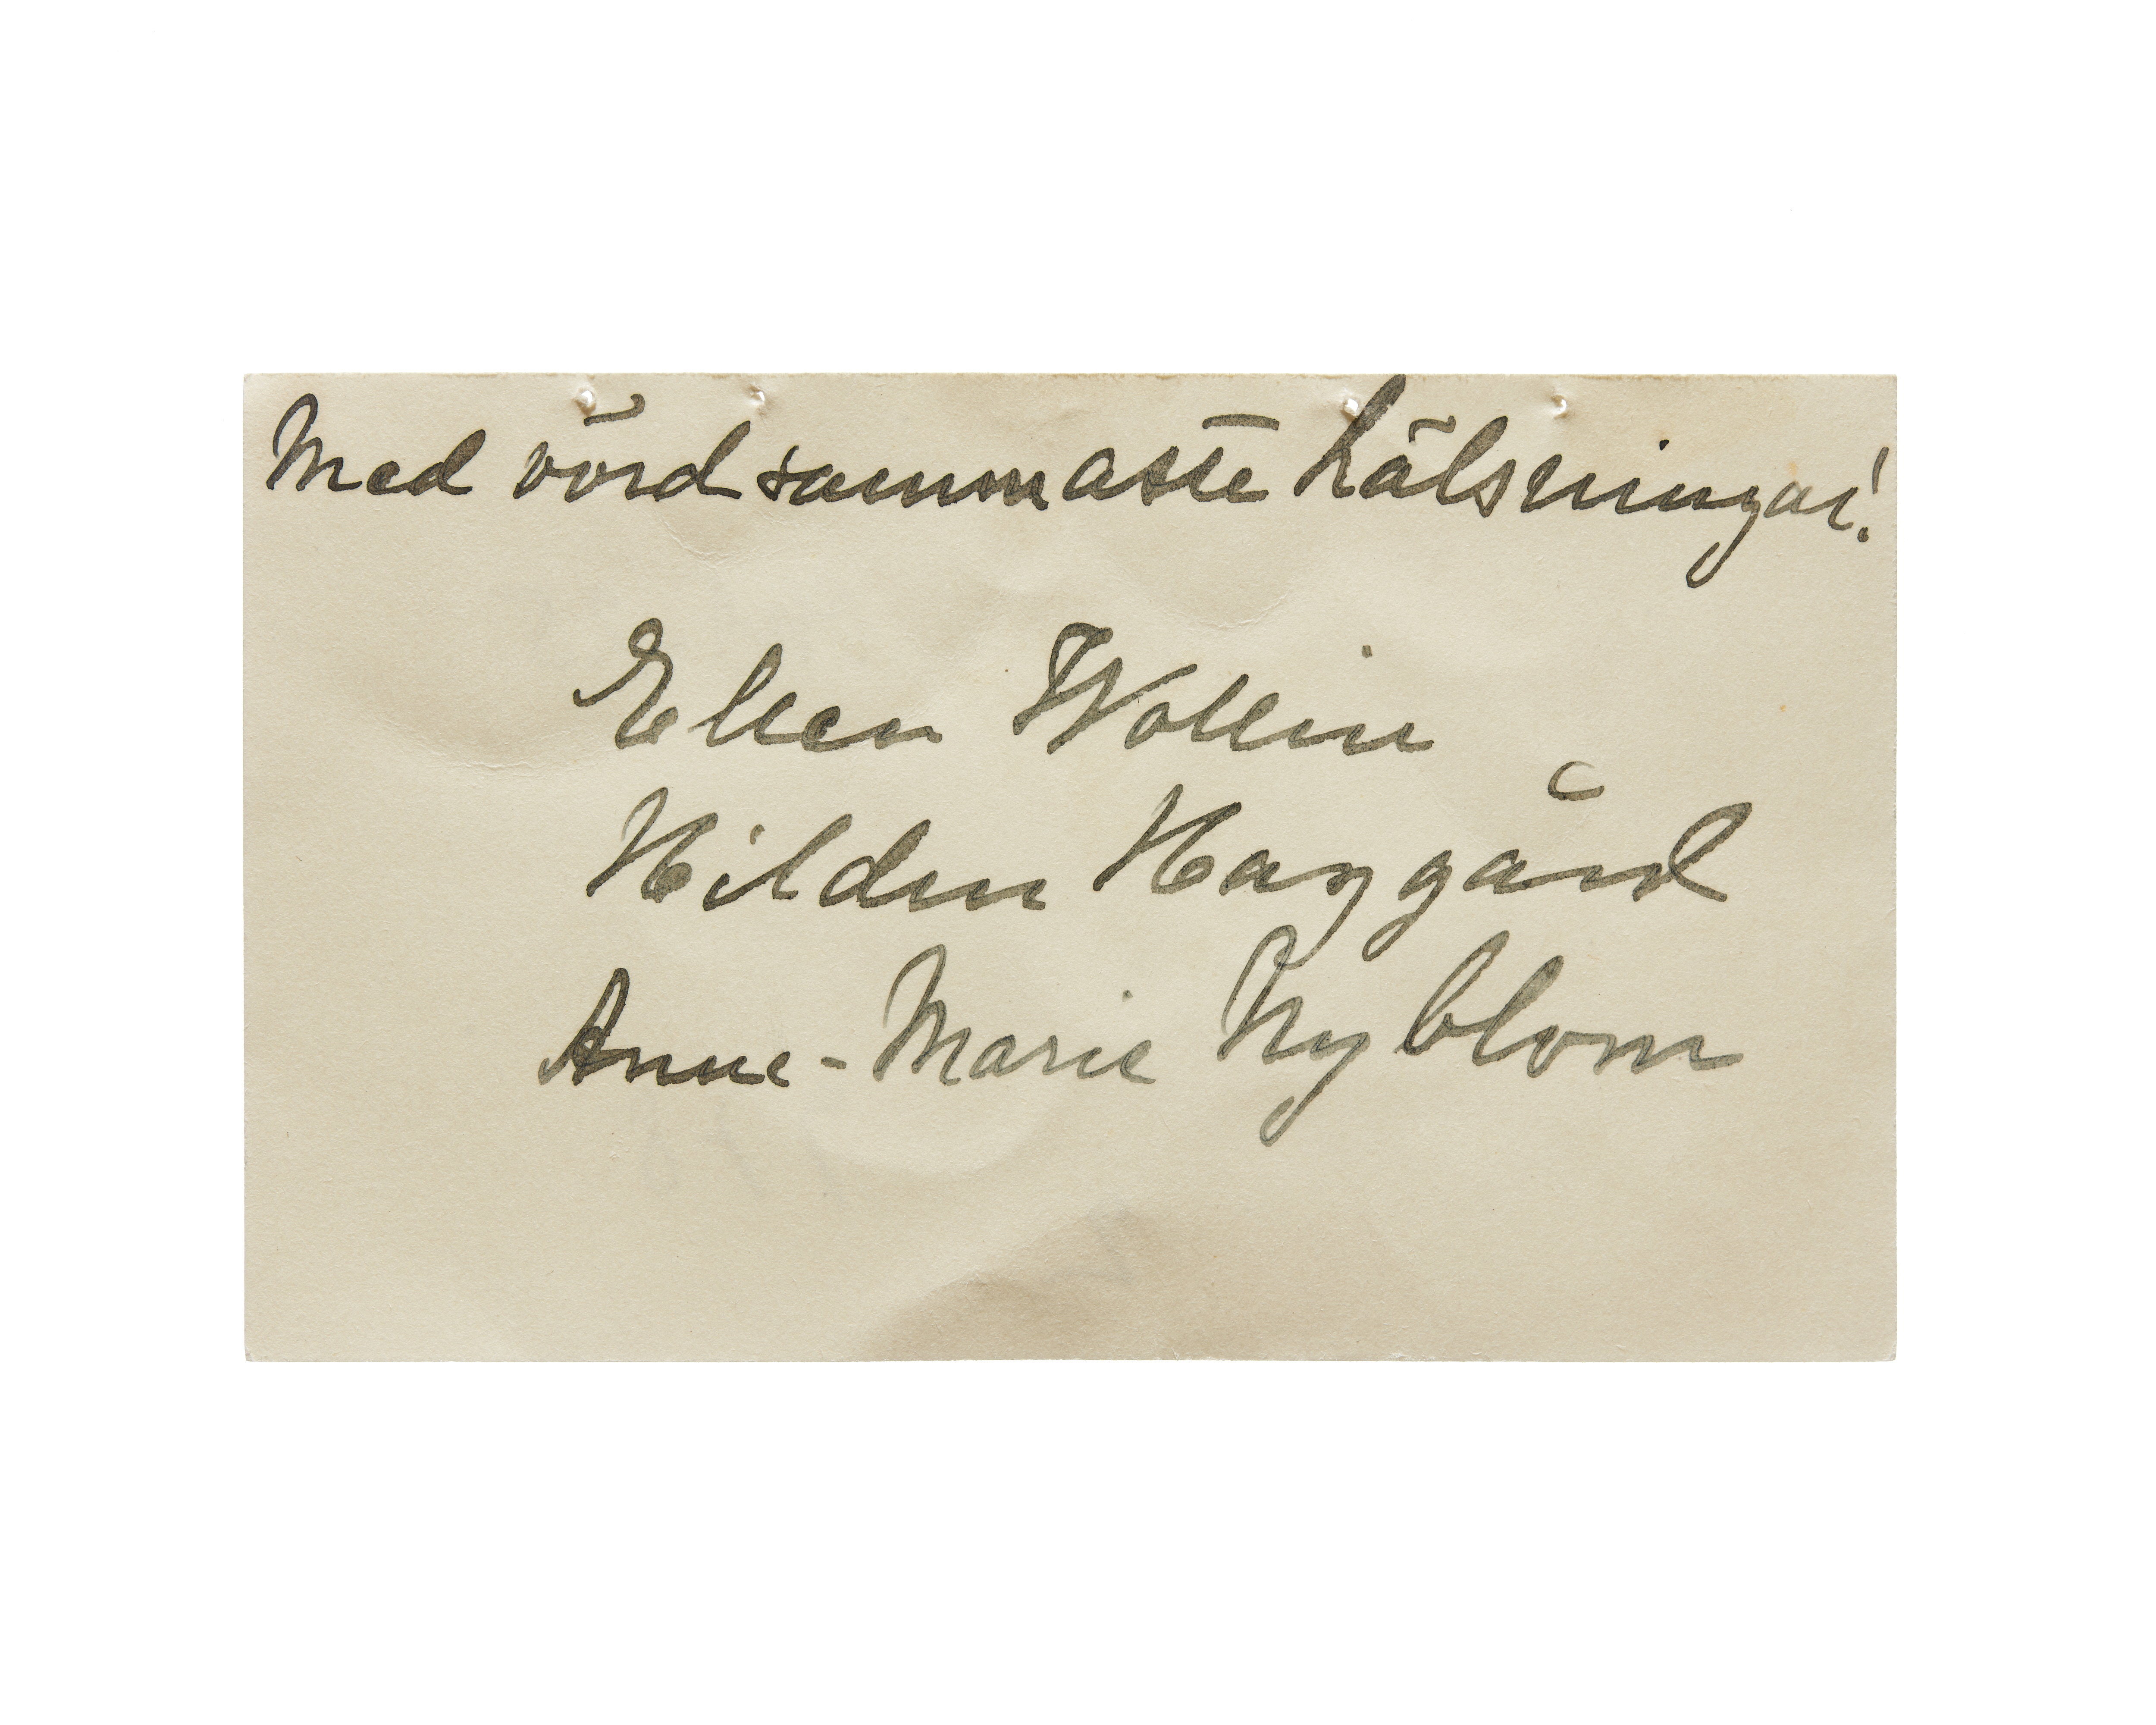 Med vördsammaste hälsningar!
Ellen Wollin
Hildur Haggård
Anne-Marie Nyblom